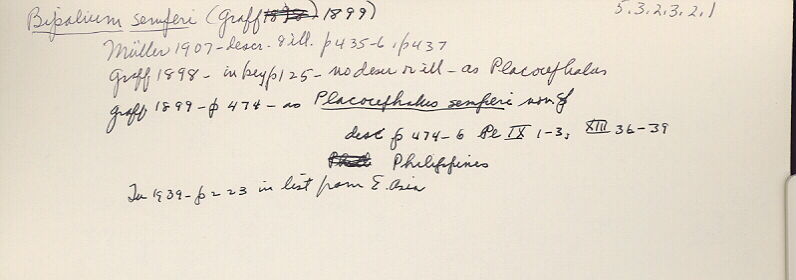 Bipalium semperi (Graff 1898) 1899)
5.3.2.3.2.1
Müller 1907 - descr. & ill. p 435-6, p 437
Graff 1898 - in key p 125 - no descr or ill - as Placocephalus
Graff 1899 - p 474 - as Placocephalus semperi nom
desc p 474-6 Pl IX 1-3, XIII 36-39
Philippines
Tu 1939 - p 223 in list from E. Asia